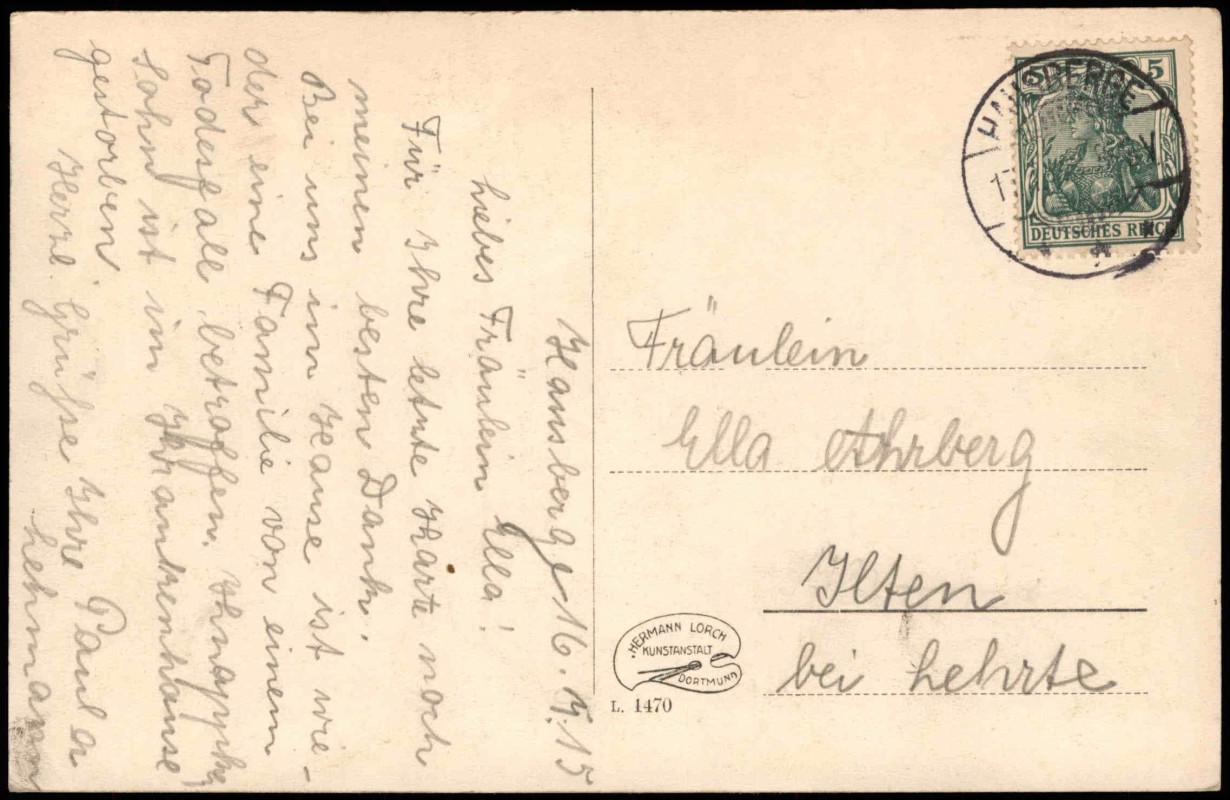 Hausberge 16.4.15
Liebes Fräulein Ella!
Für Ihre letzte Karte noch
meinen besten Dank.
Bei uns im Hause ist wie-
der eine Familie von einem
Todesfall betroffen.
Sohn ist im Krankenhause
gestorben.
Herzl. Grüße Ihre
Lehmann
5
DEUTSCHES REICH
HAUSBERGE
Fräulein
Ella Ahrberg
Ilten
bei Lehrte
HERMANN LORCH
KUNSTANSTALT
DORTMUND
L. 1470